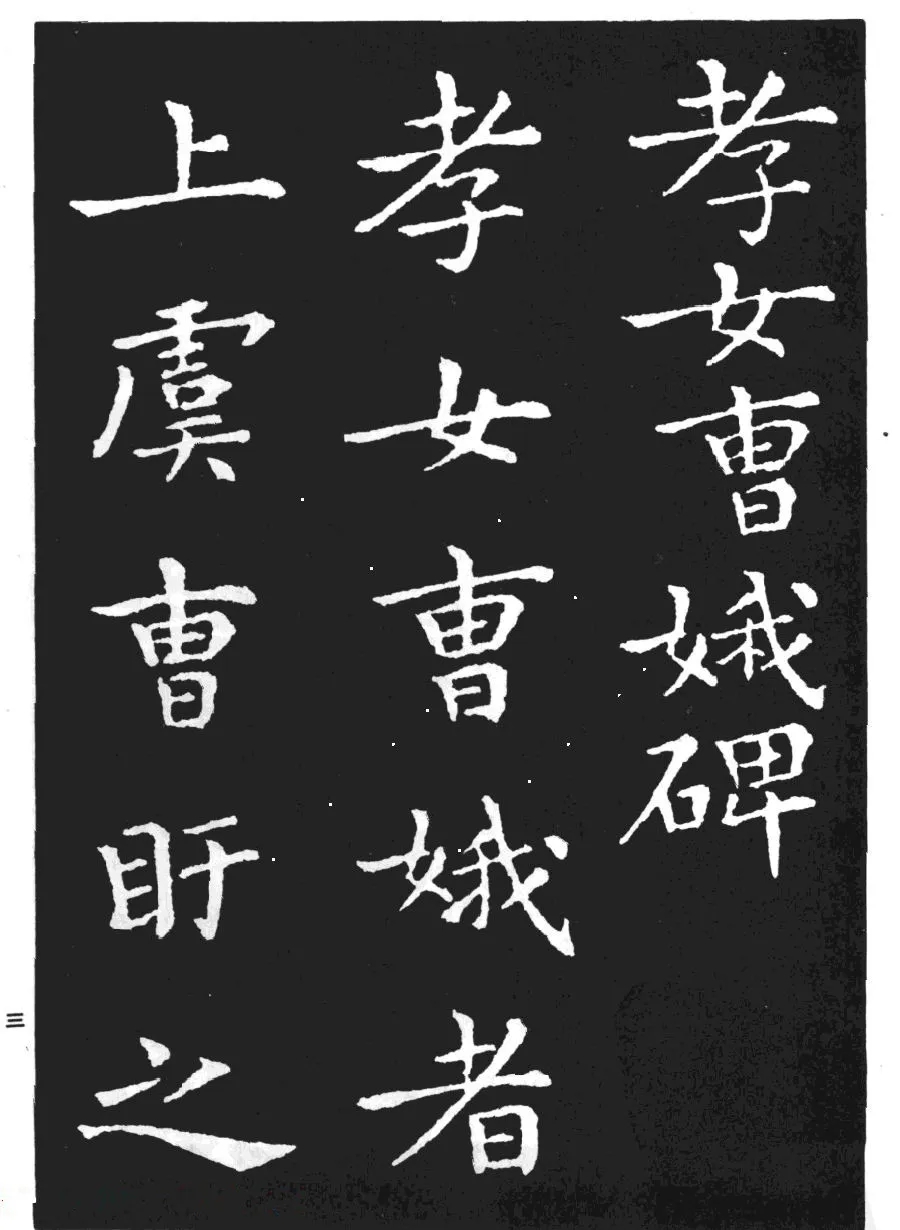 孝女曺娥碑
孝女曺娥者
上虞曺盱之
三